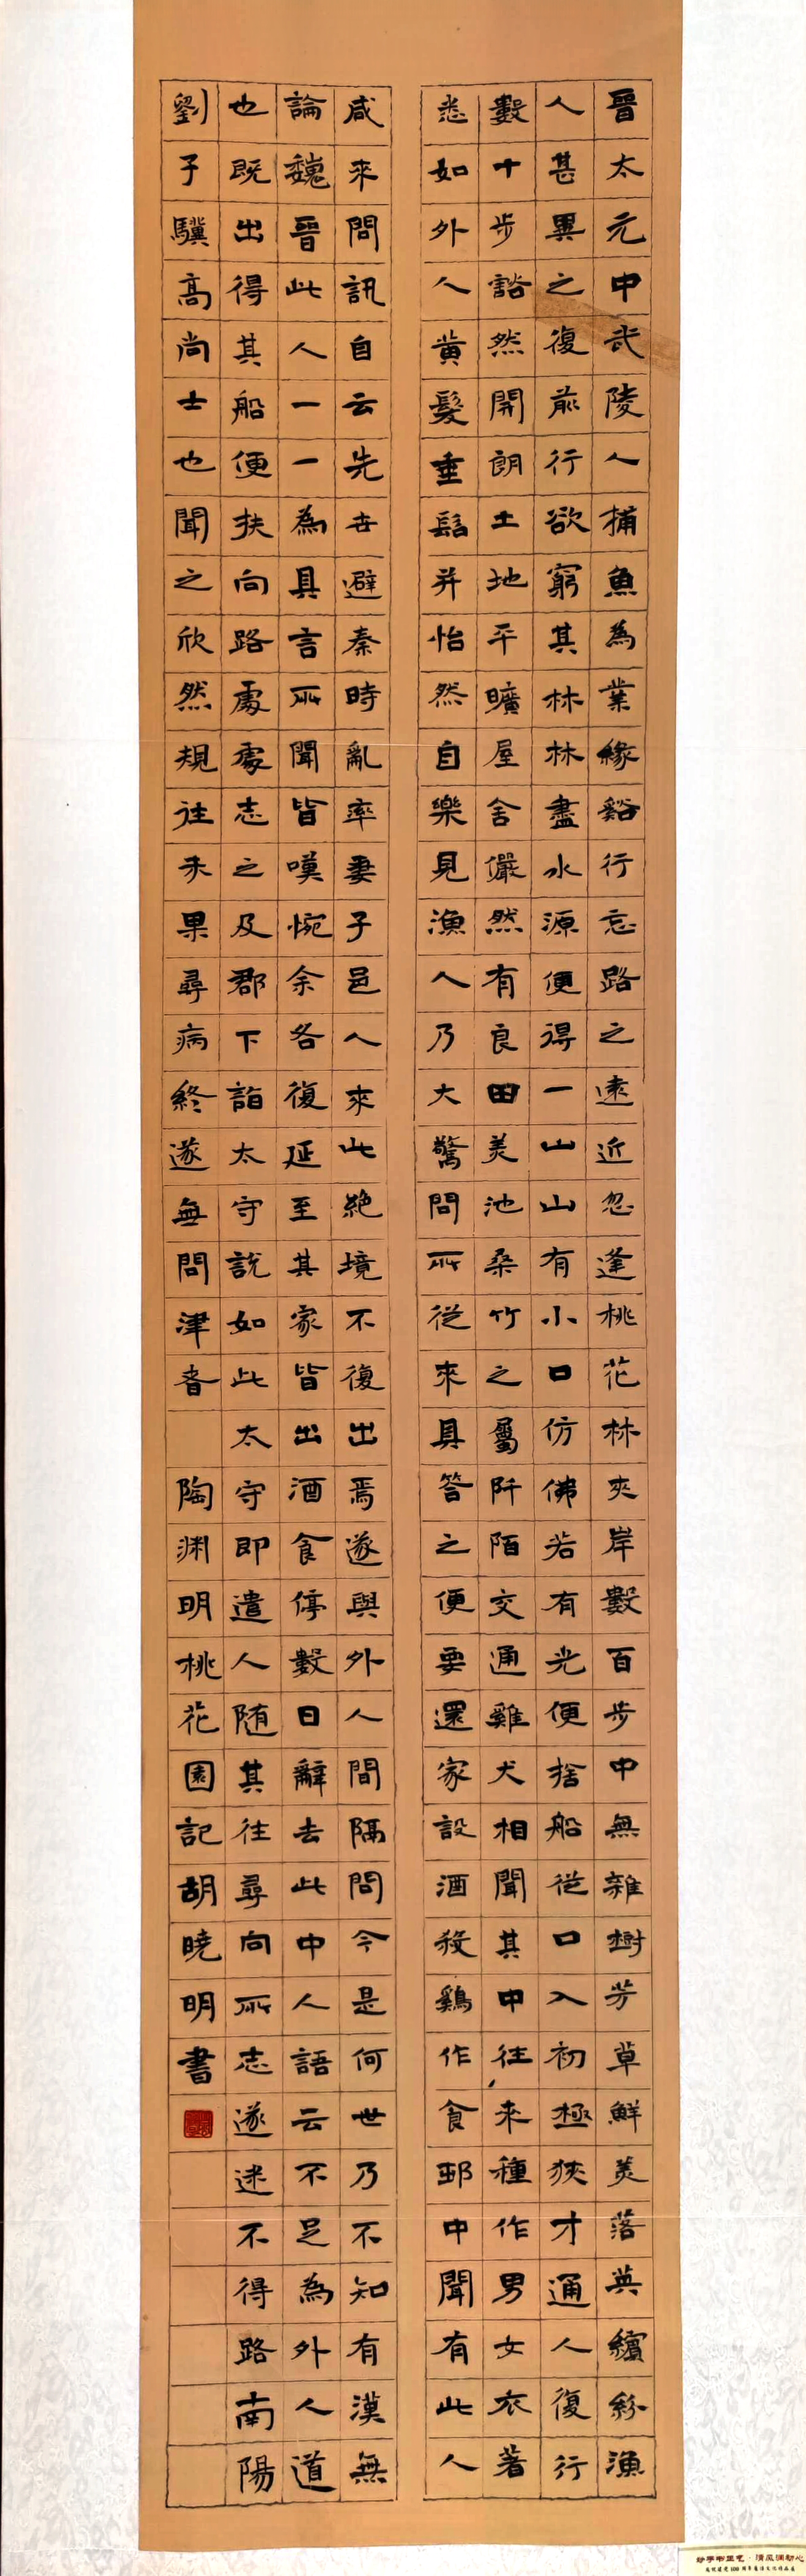 晉太元中武陵人捕魚為業緣谿行忘路之遠近忽逢桃花林夾岸數百步中無雜樹芳草鮮美落英繽紛漁
人甚異之復前行欲窮其林林盡水源便得一山山有小口仿佛若有光便捨船從口入初極狹才通人復行
數十步豁然開朗土地平曠屋舍儼然有良田美池桑竹之屬阡陌交通雞犬相聞其中往來種作男女衣著
悉如外人黃髮垂髫并怡然自樂見漁人乃大驚問所從來具答之便要還家設酒殺鷄作食邨中聞有此人
咸來問訊自云先世避秦時亂率妻子邑人來此絕境不復出焉遂與外人間隔問今是何世乃不知有漢無
論魏晉此人一一為具言所聞皆嘆惋余各復延至其家皆出酒食停數日辭去此中人語云不足為外人道
也既出得其船便扶向路處處志之及郡下詣太守說如此太守即遣人随其往尋向所志遂迷不得路南陽
劉子驥高尚士也聞之欣然規往未果尋病終遂無問津者 陶渊明桃花園記胡曉明書